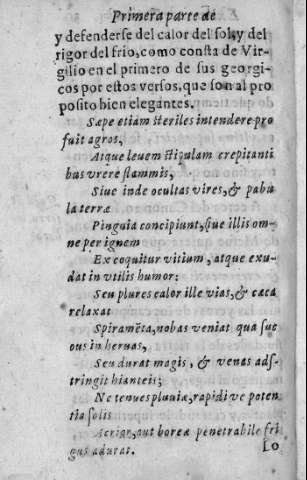 Primera parte de
y defenderse del calor del sol, y del
rigor del frio, como consta de Vir-
gilio en el primero de sus georgi-
cos por estos versos, que son al pro
posito bien elegantes.
Sæpe etiam steriles intendere pro
fuit agros,
Atque leuem stipulam crepitanti
bus vrere flammis,
Siue inde ocultas vires, & pabu
la terræ
Pinguia concipiunt, siue illis om-
ne per ignem
Ex coquitur vitium, atque exu-
dat in vtilis humor:
Seu plures calor ille vias, & cæca
relaxat
Spiramēta, nobas veniat qua suc
ous in heruas,
Seu durat magis, & venas ads-
tringit hianteis;
Ne tenues pluuiæ, rapidi ve poten
tia solis
Acrior, aut boreæ penetrabile fri
gus adurat.
Lo